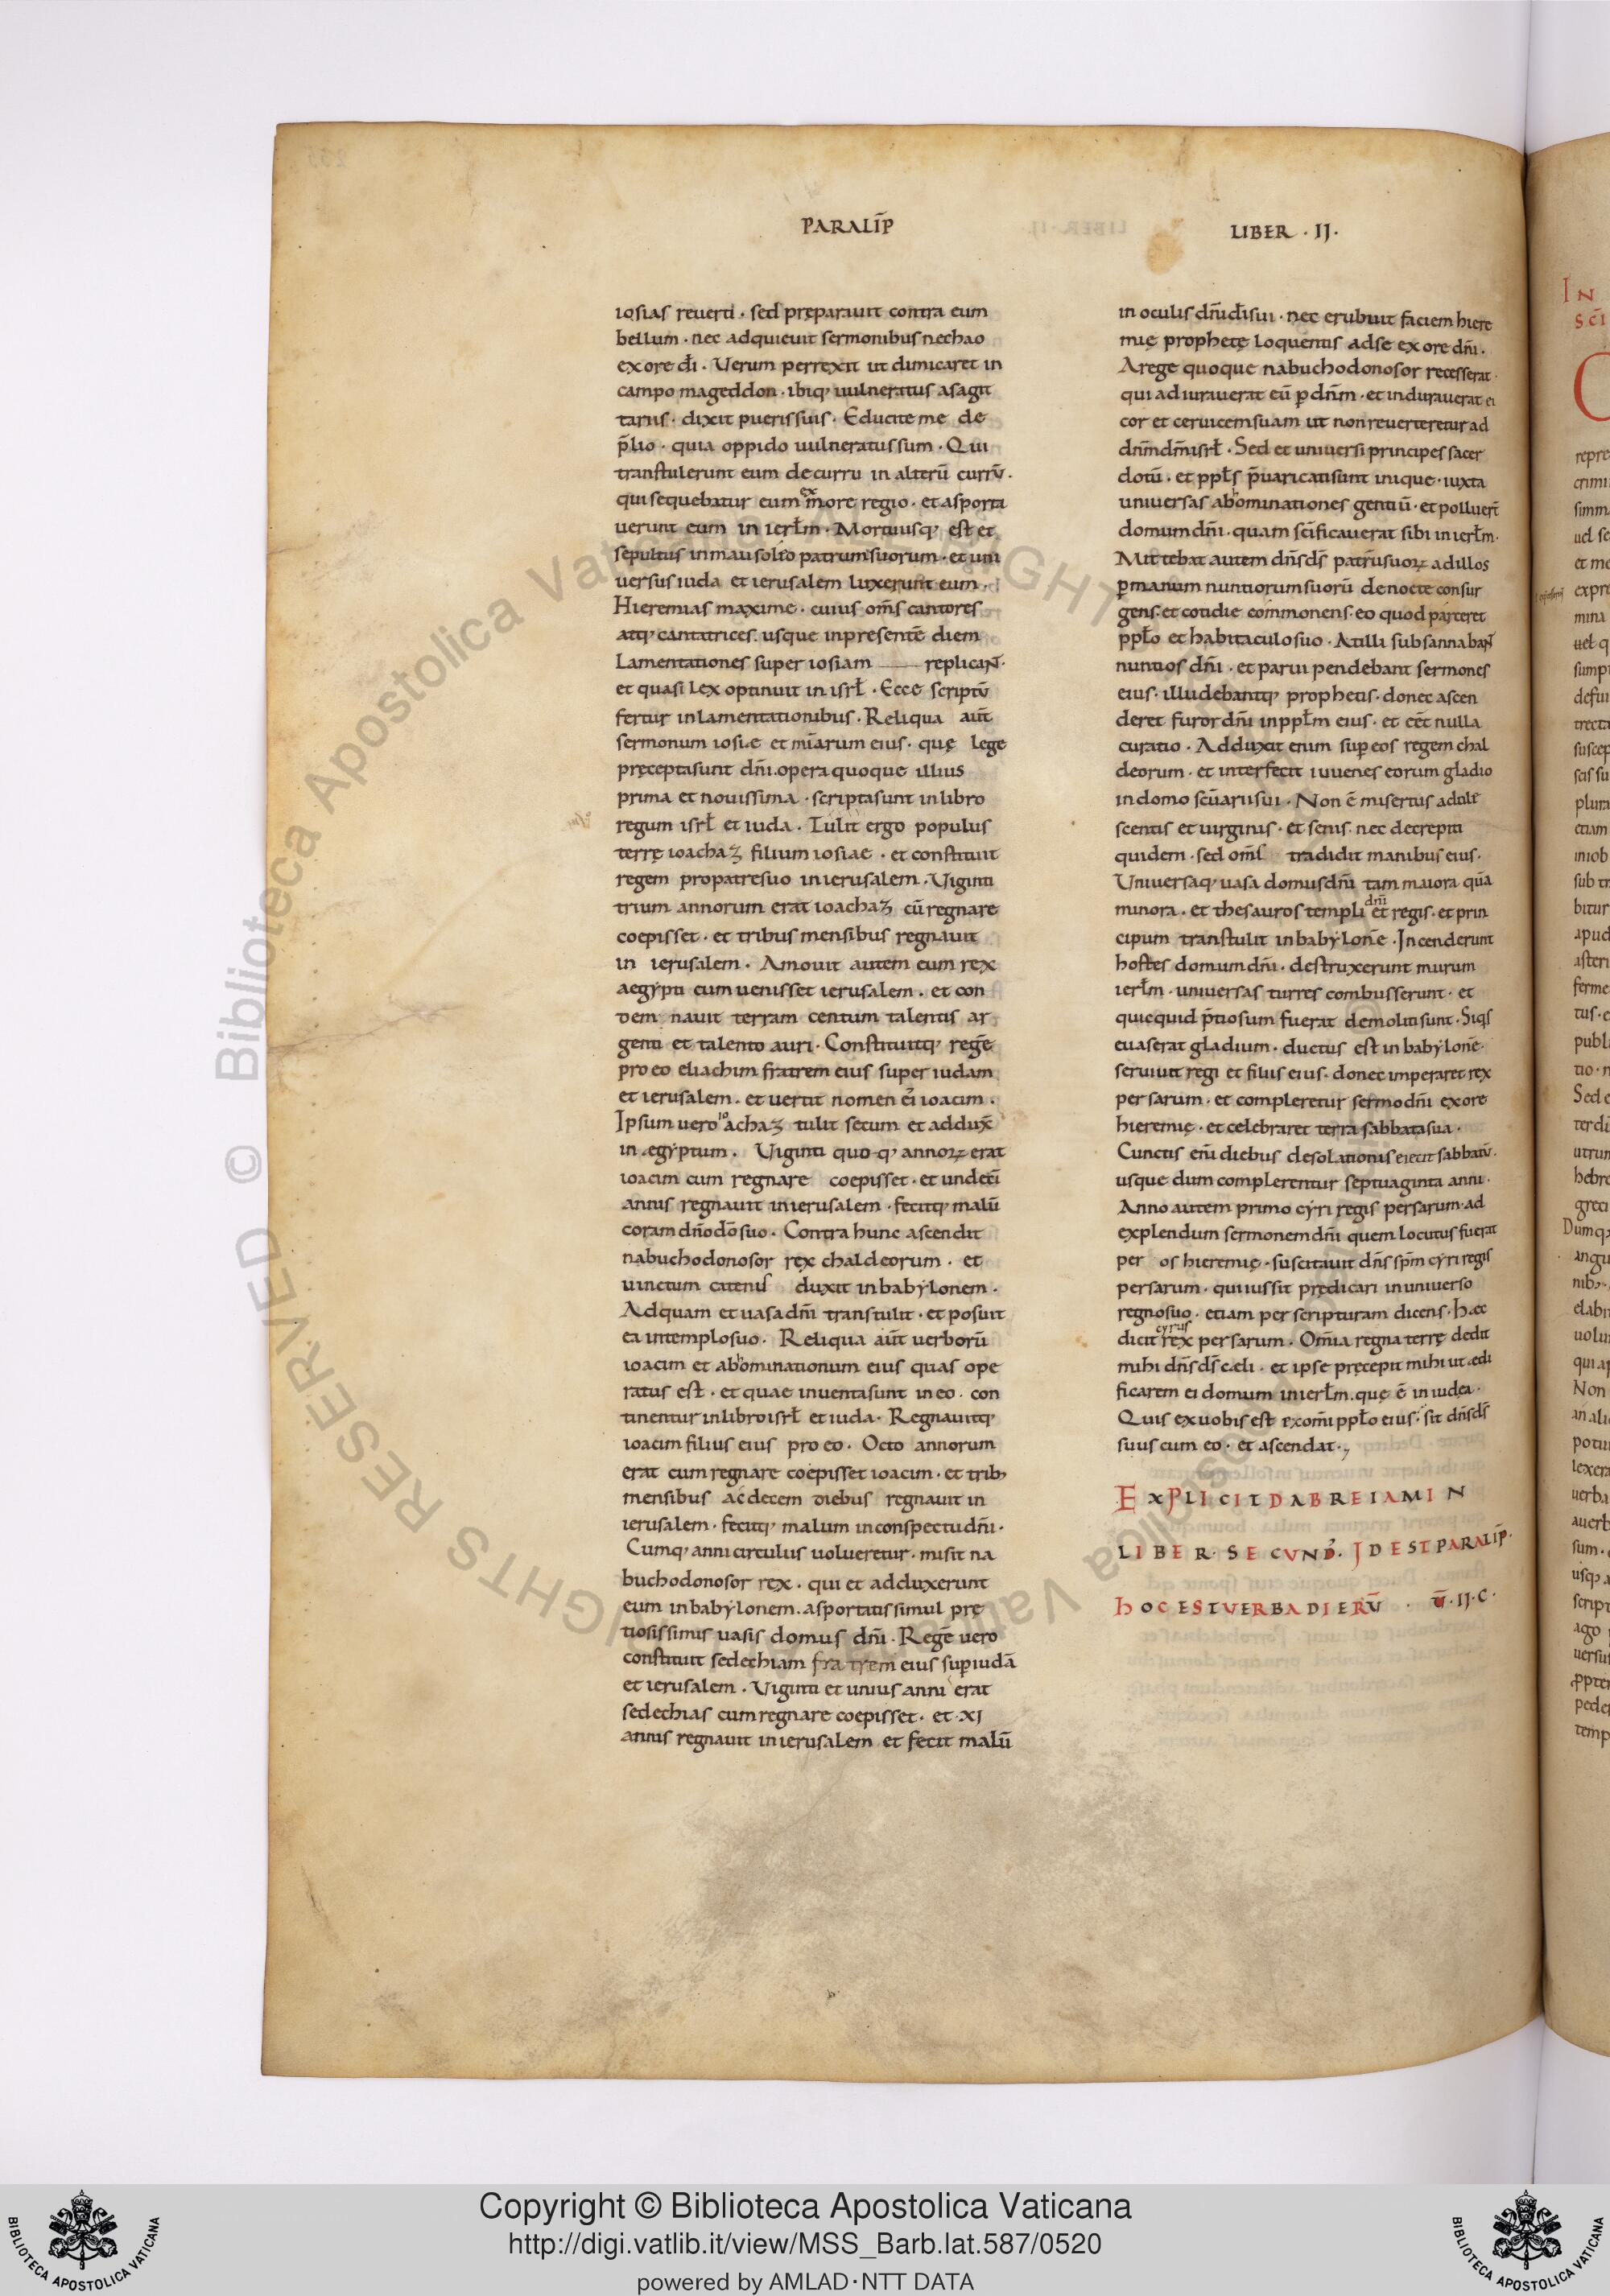 PARALIP̄
iosias reuerti · sed pręparauit contra eum
bellum · nec adquieuit sermonibus nechao
ex ore dī · Verum perrexit ut dimicaret in
campo mageddon · ibiq; uulneratus a sagit
tariis · dixit pueris suis · Educite me de
p̄lio · quia oppido uulneratus sum · Qui
transtulerunt eum de curru in alterū currū ·
qui sequebatur eum ex more regio · et asporta
uerunt eum in ierłm · Mortuusq; est et
sepultus in mausoleo patrum suorum · et uni
uersus iuda et ierusalem luxerunt eum ·
Hieremias maxime · cuius om̄s cantores
atq; cantatrices usque in presentē diem
Lamentationes super iosiam replicant ·
et quasi lex optinuit in isrł · Ecce scriptū
fertur in lamentationibus · Reliqua aūt
sermonum iosiæ et miarum eius · quę lege
pręcepta sunt dn̄i · opera quoque illius
prima et nouissima · scripta sunt in libro
regum isrł et iuda · Tulit ergo populus
terrę ioachaz filium iosiae · et constituit
regem pro patre suo in ierusalem · Viginti
trium annorum erat ioachaz cū regnare
coepisset · et tribus mensibus regnauit
in ierusalem · Amouit autem eum rex
aegypti cum uenisset ierusalem · et con
demnauit terram centum talentis ar
genti et talento auri · Constituitq; regē
pro eo eliachim fratrem eius super iudam
et ierusalem · et uertit nomen ei ioacim ·
Ipsum uero ioachaz tulit secum et addux̄
in ægyptum · Viginti quoq; annoꝝ erat
ioacim cum regnare coepisset · et undeci
annis regnauit in ierusalem · fecitq; malū
coram dn̄o dō suo · Contra hunc ascendit
nabuchodonosor rex chaldeorum · et
uinctum catenis duxit in babylonem ·
Ad quam et uasa dn̄i transtulit · et posuit
ea in templo suo · Reliqua aūt uerborū
ioacim et abhominationum eius quas ope
ratus est · et quae inuenta sunt in eo · con
tinentur in libro isrł et iuda · Regnauitq;
ioacim filius eius pro eo · Octo annorum
erat cum regnare coepisset ioacim · et trib;
mensibus ac decem diebus regnauit in
ierusalem · fecitq; malum in conspectu dn̄i ·
Cumq; anni circulus uolueretur · misit na
buchodonosor rex · qui et adduxerunt
eum in babylonem · asportatis simul prę
tiosissimis uasis domus dn̄i · Regē uero
constituit sedechiam fratrem eius sup iudā
et ierusalem · Viginti et unius anni erat
sedechias cum regnare coepisset · et · XI
annis regnauit in ierusalem et fecit malū
LIBER · II ·
in oculis dn̄i dī sui · nec erubuit faciem hiere
mię prophetę loquentis ad se ex ore dn̄i ·
A rege quoque nabuchodonosor recesserat ·
qui adiurauerat eū p dn̄m · et indurauerat ei
cor et ceruicem suam ut non reuerteretur ad
dn̄m dm̄ isrł · Sed et uniuersi principes sacer
dotū · et ppłs p̄uaricati sunt inique · iuxta
uniuersas abhominationes gentiū · et polluert̄
domum dn̄i · quam sc̄ificauerat sibi in ierłm ·
Mittebat autem dn̄s ds̄ patrū suoꝝ ad illos
p manum nuntiorum suorū de nocte consur
gens · et cotidie commonens · eo quod parceret
ppło et habitaculo suo · At illi subsannabant
nuntios dn̄i · et parui pendebant sermones
eius · illudebantq; prophetis · donec ascen
deret furor dn̄i in ppłm eius · et eēt nulla
curatio · Adduxit enim sup eos regem chal
deorum · et interfecit iuuenes eorum gladio
in domo sc̄uarii sui · Non ē misertus adule
scentis et uirginis · et senis · nec decrepiti
quidem · sed om̄s tradidit manibus eius ·
Vniuersaq; uasa domus dn̄i tam maiora quā
minora · et thesauros templi dn̄i et regis · et prin
cipum transtulit in babylonē · Incenderunt
hostes domum dn̄i · destruxerunt murum
ierłm · uniuersas turres combusserunt · et
quicquid p̄tiosum fuerat demoliti sunt · Siqs
euaserat gladium · ductus est in babylonē ·
seruiuit regi et filiis eius · donec imperaret rex
persarum · et compleretur sermo dn̄i ex ore
hieremię · et celebraret terra sabbata sua ·
Cunctis eni diebus desolationis eiecit sabbatū ·
usque dum complerentur septuaginta anni ·
Anno autem primo cyri regis persarum · ad
explendum sermonem dn̄i quem locutus fuerat
per os hieremię · suscitauit dn̄s sp̄m cyri regis
persarum · qui iussit pręedicari in uniuerso
regno suo · etiam per scripturam dicens · Hæc
dicit cyrus rex persarum · Om̄ia regna terrę dedit
mihi dn̄s ds̄ cæli · et ipse pręcepit mihi ut ædi
ficarem ei domum in ierłm · quę ē in iudęa ·
Quis ex uobis est ex om̄i ppło eius · sit dn̄s ds̄
suus cum eo · et ascendat ·,
EXPLICIT DABREIAMIN
LIBER · SECVND · ID EST PARALIP̄ ·
HOC EST VERBA DIERŪ · V̄ · II · C ·
Copyright © Biblioteca Apostolica Vaticana
http://digi.vatlib.it/view/MSS_Barb.lat.587/0520
powered by AMLAD·NTT DATA